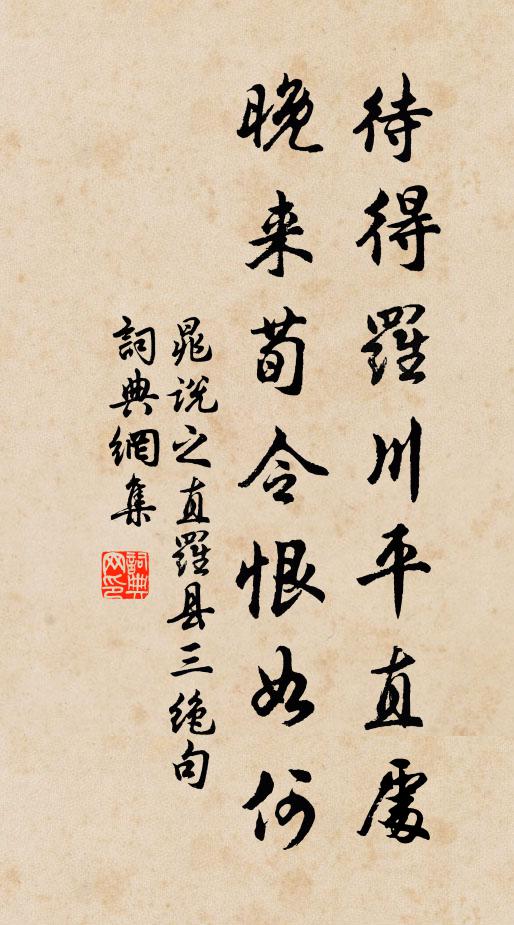 待得羅川平直處
晚来荀令恨如何
晁说之直羅县三绝句
詞典網集
詞典网印